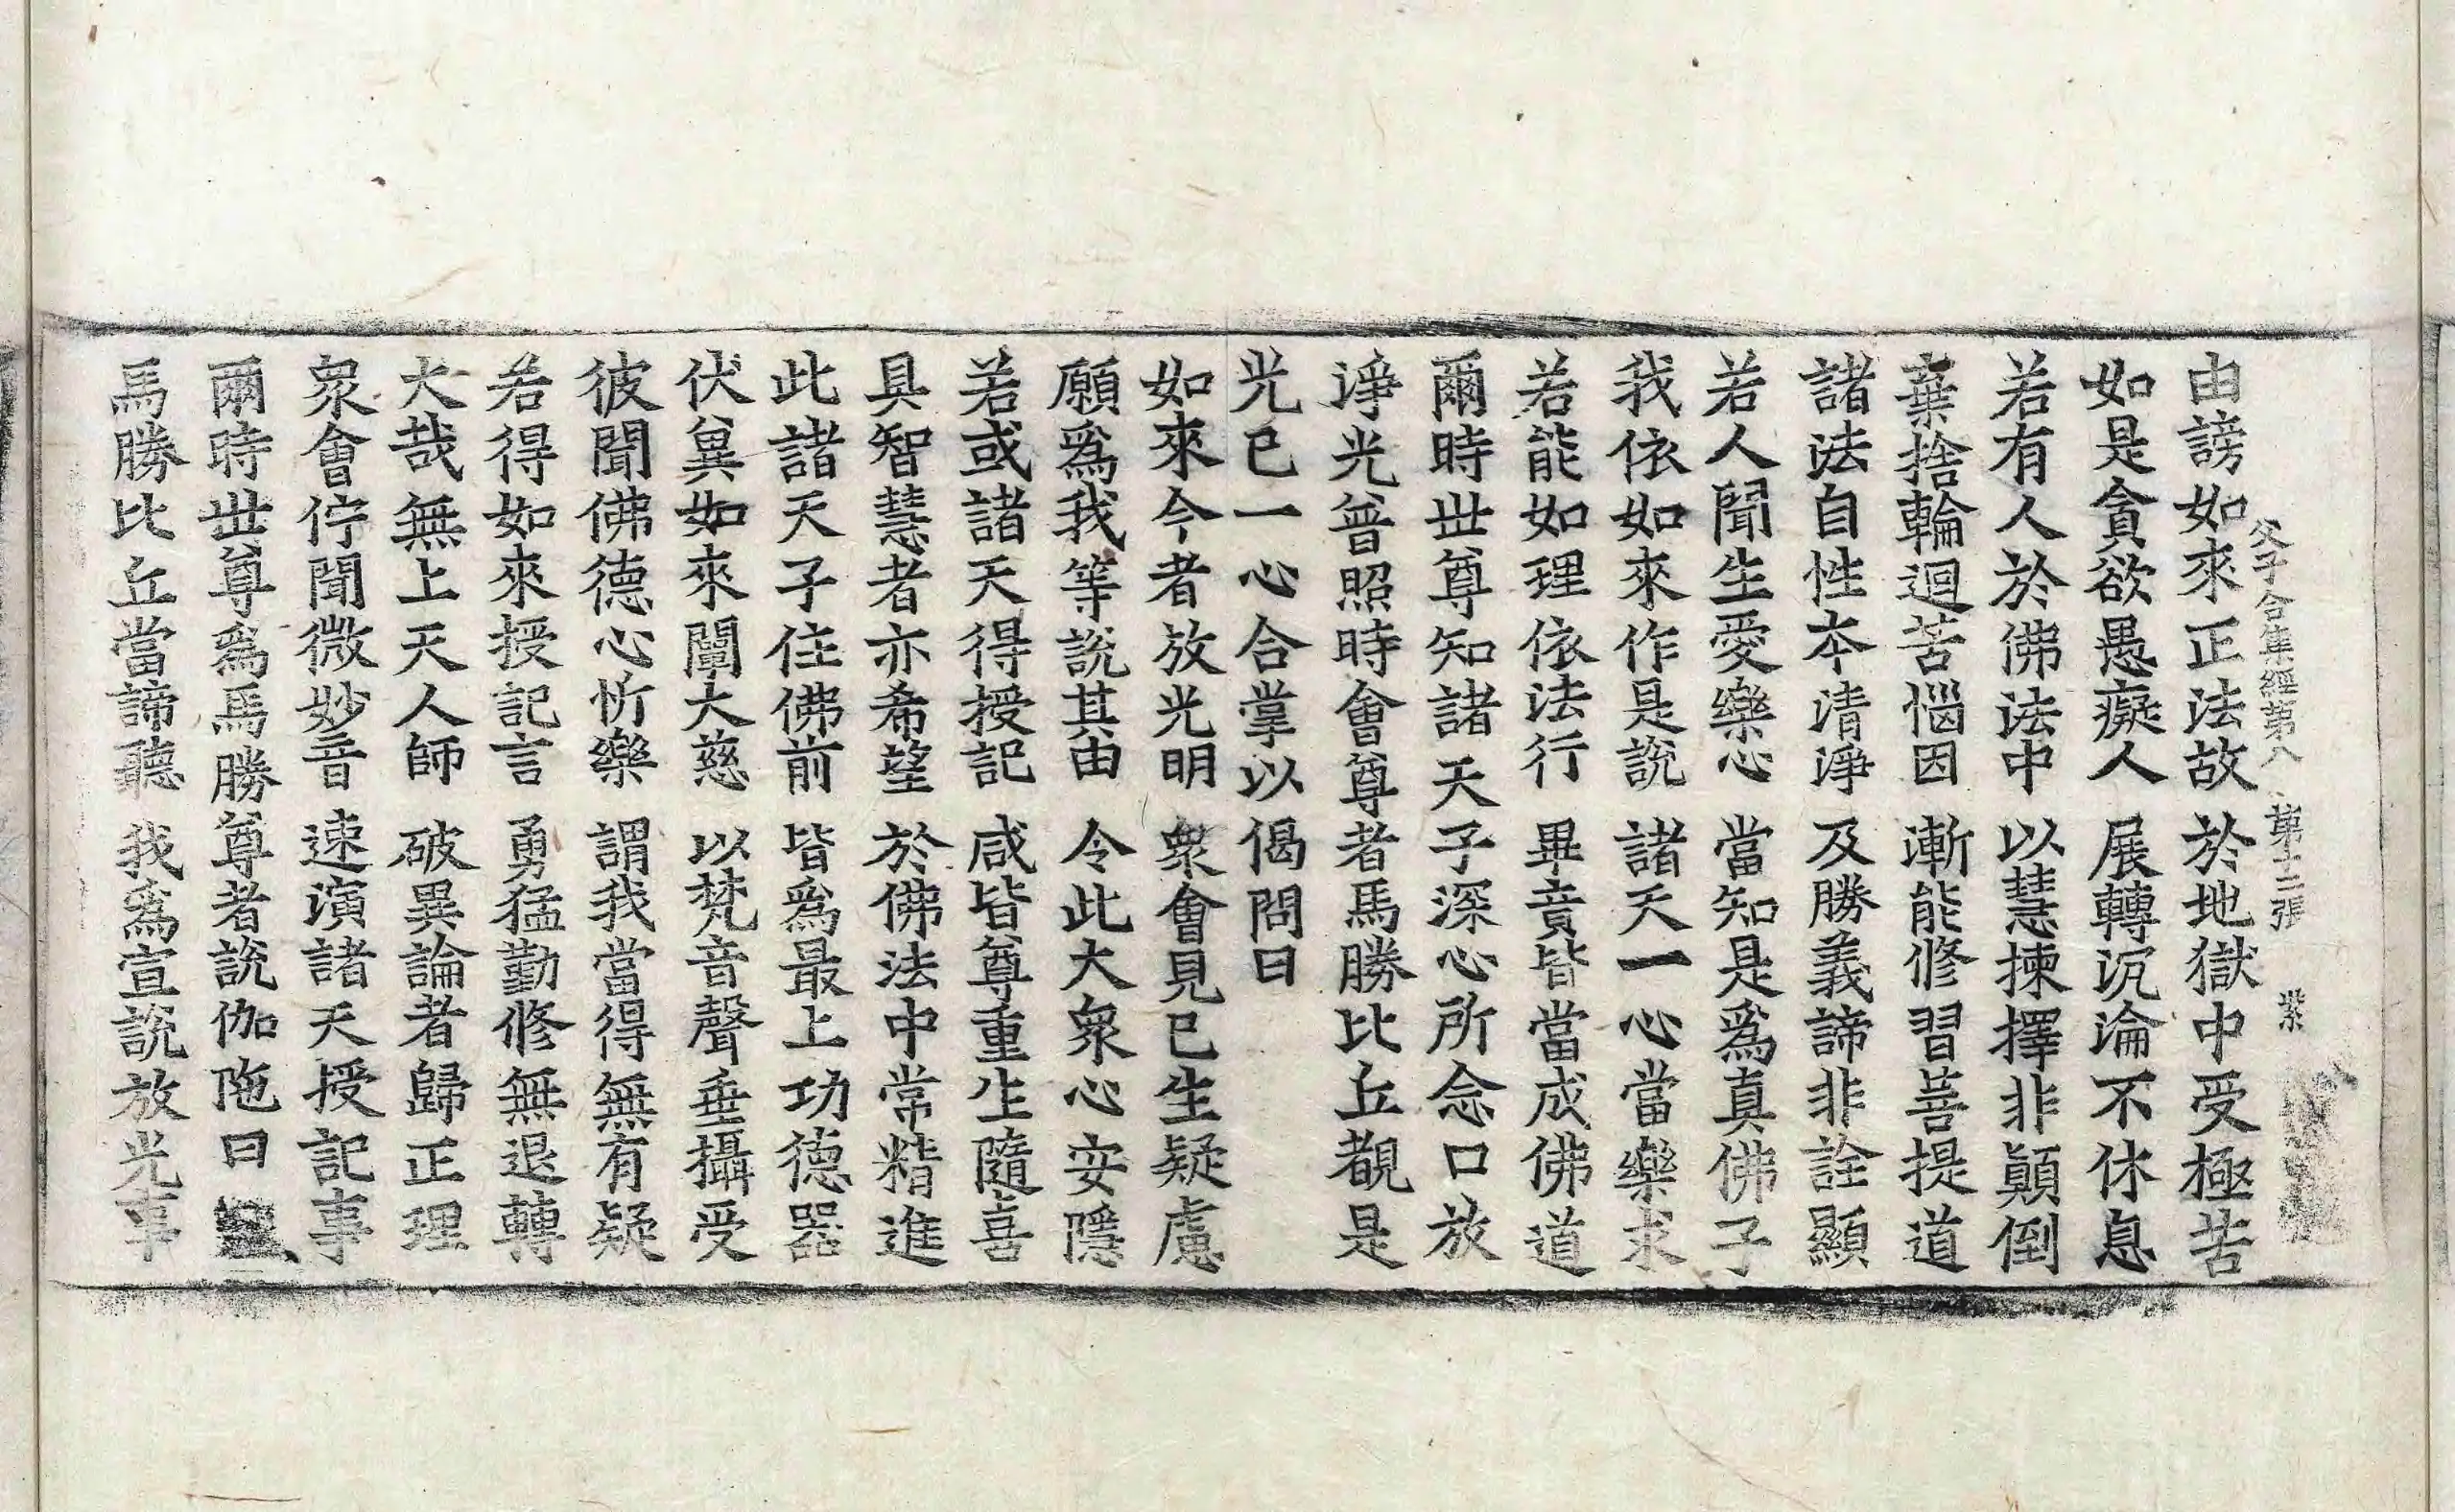 父子合集經第八 第十二張 紫
由謗如來正法故 於地獄中受極苦
如是貪欲愚癡人 展轉沉淪不休息
若有人於佛法中 以慧揀擇非顚倒
棄捨輪迴苦惱因 漸能修習菩提道
諸法自性本清淨 及勝義諦非詮顯
若人聞生愛樂心 當知是爲真佛子
我依如來作是說 諸天一心當樂求
若能如理依法行 畢竟皆當成佛道
爾時世尊知諸天子深心所念口放
淨光普照時會尊者馬勝比丘覩是
光已一心合掌以偈問曰
如來今者放光明 衆會見已生疑慮
願爲我等說其由 令此大衆心安隱
若或諸天得授記 咸皆尊重生隨喜
具智慧者亦希望 於佛法中常精進
此諸天子住佛前 皆爲最上功德器
伏冀如來闡大慈 以梵音聲垂攝受
彼聞佛德心忻樂 謂我當得無有疑
若得如來授記言 勇猛勤修無退轉
大哉無上天人師 破異論者歸正理
衆會佇聞微妙音 速演諸天授記事
爾時世尊爲馬勝尊者說伽陁曰
馬勝比丘當諦聽 我爲宣說放光事